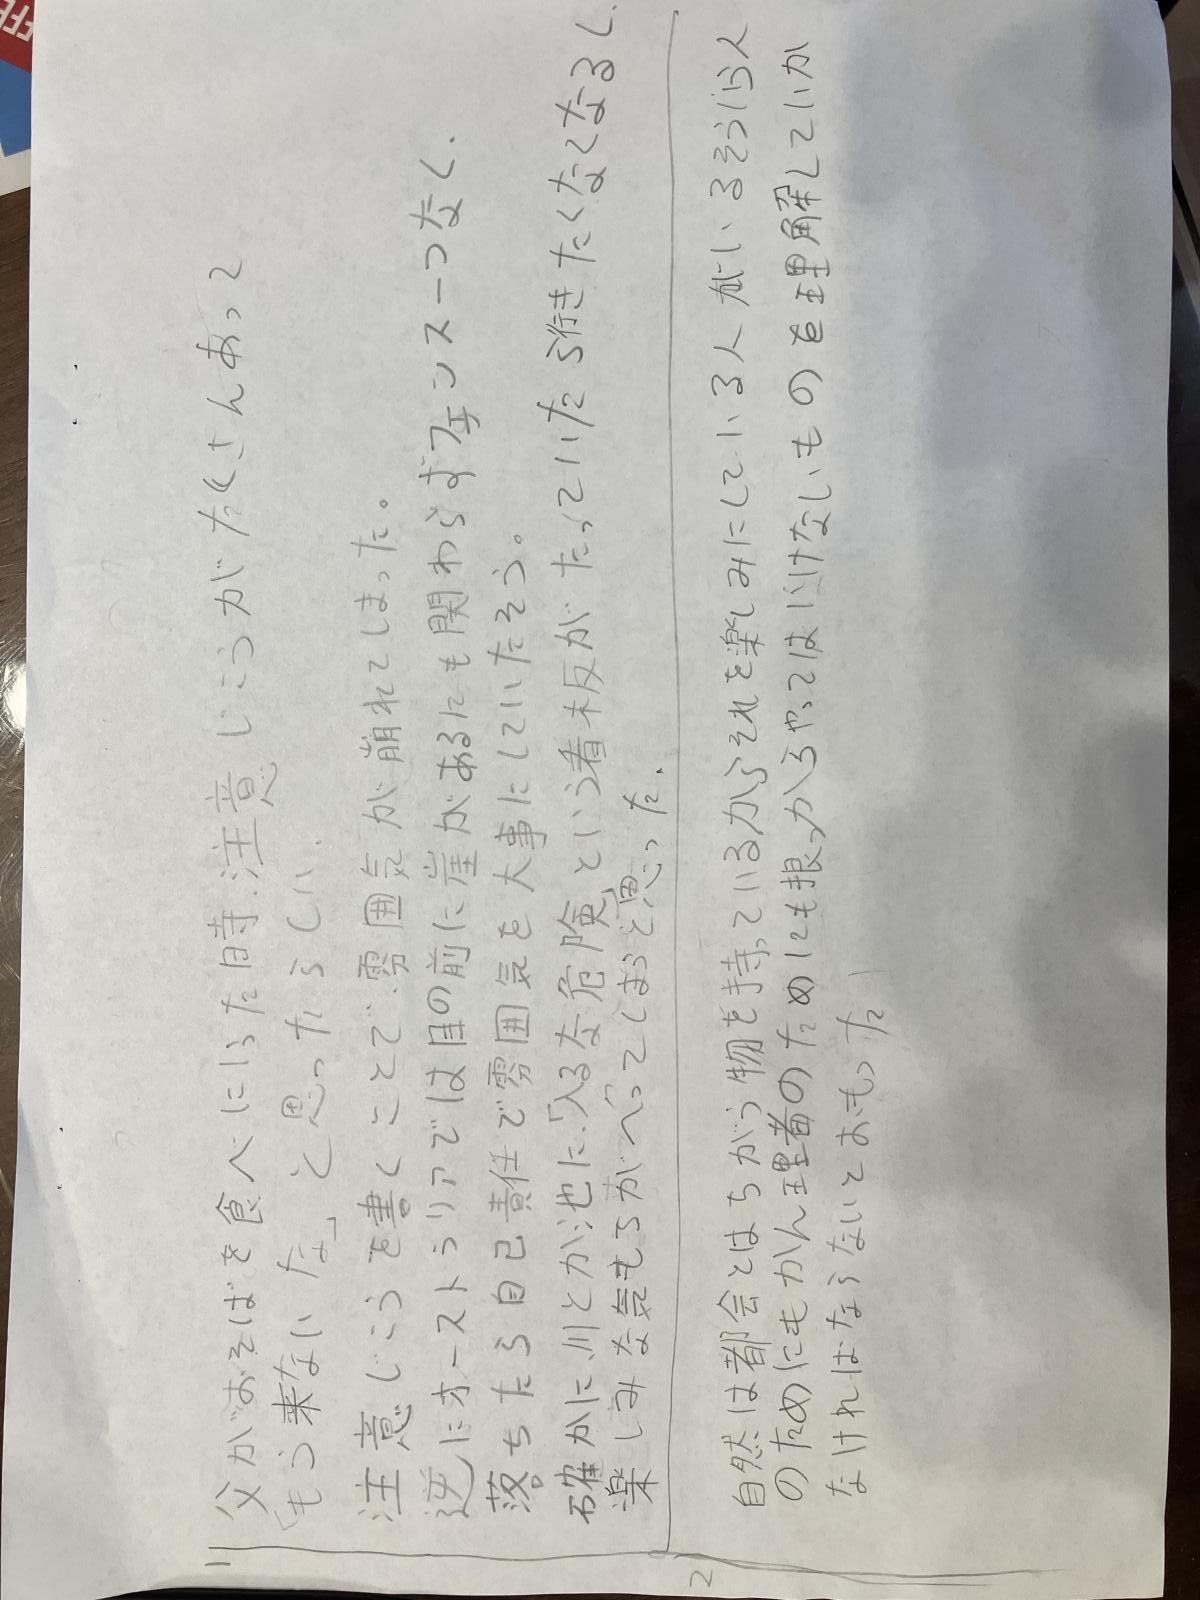 1
父がおそばを食べに行った時、注意じこうがたくさんあって
「もう来ないな」と思ったらしい、
注意じこうを書くことで雰囲気が崩れてしまった。
逆にオーストラリアでは目の前に崖があるにも関わらずフェンス一つなく、
落ちたら自己責任で雰囲気を大事にしていたそう。
確かに、川とか池に、「入るな危険」という看板がたっていたら行きたくなくなるし、
楽しみな気もちがへってしまうと思った、
2
自然は都会とはちがう物を持っているからそれを楽しみにしている人がいるそういう人
のためにもかん理者のためにも根っからやってはいけないものを理解していか
なければならないとおもった